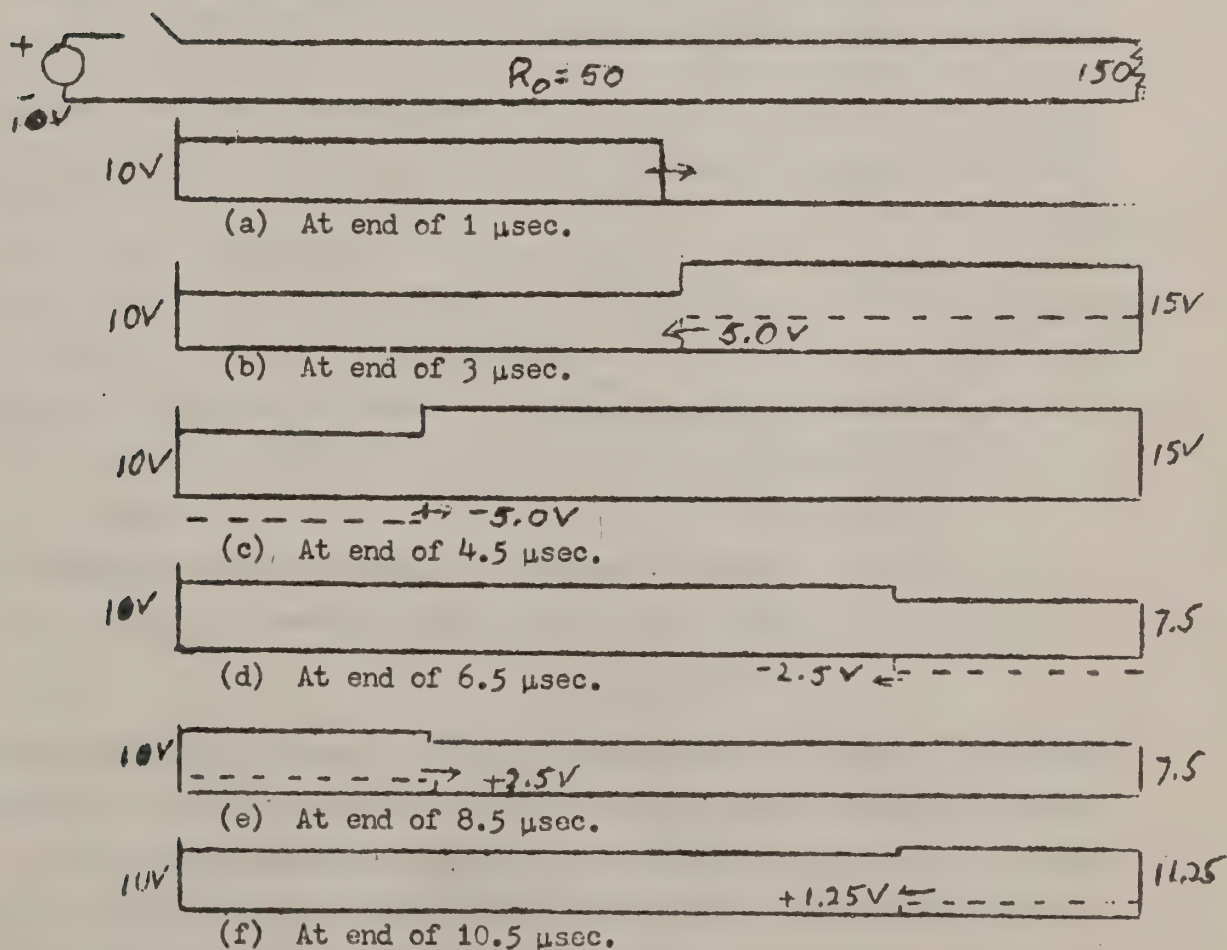 +
-
10V
R₀=50
150
10V
(a) At end of 1 μsec.
10V
5.0V
15V
(b) At end of 3 μsec.
10V
15V
-5.0V
(c) At end of 4.5 μsec.
10V
7.5
-2.5V
(d) At end of 6.5 μsec.
10V
+2.5V
7.5
(e) At end of 8.5 μsec.
10V
+1.25V
11.25
(f) At end of 10.5 μsec.